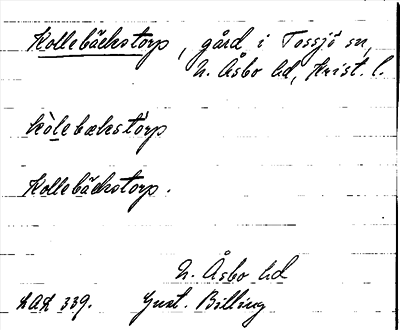 Kollebäckstorp, gård i Tossjö sn,
N. Åsbo hd, Krist. l.
kòlebækstörp
Kollebäckstorp.
N. Åsbo hd
LAL 339. Gust. Billing